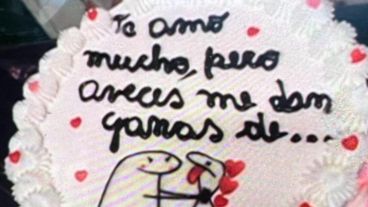 Te amo
mucho, pero
aveces me dan
ganas de...